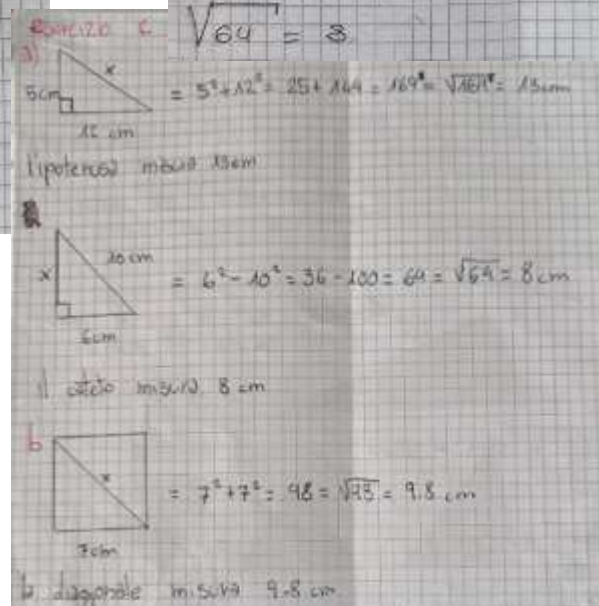 √64 = 8
Esercizio C
a)
x
5cm
12 cm
= 5²+12² = 25+144 = 169² = √169² = 13cm
l'ipotenusa misura 13cm
10 cm
x
6cm
= 6² - 10² = 36 - 100 = 64 = √64 = 8cm
il cateto misura 8 cm
b
x
7cm
= 7²+7² = 98 = √98 = 9.8 cm
diagonale misura 9.8 cm